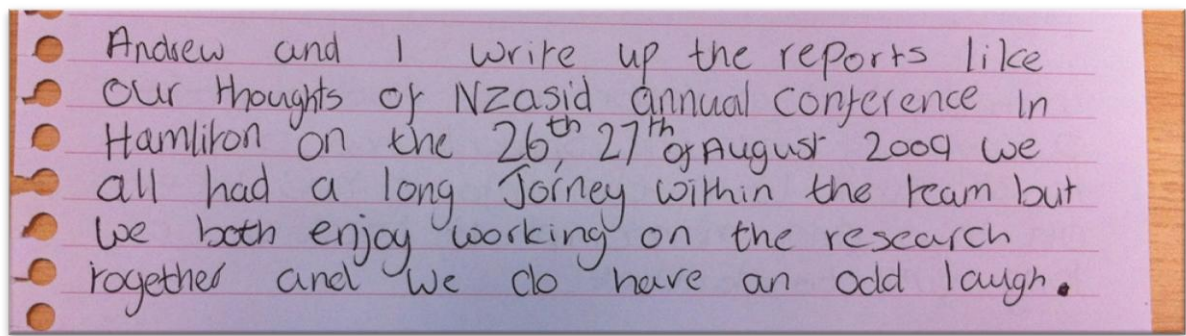 Andrew and I write up the reports like
our thoughts of Nzasid annual conference In
Hamliton on the 26th, 27th of August 2009 we
all had a long Jorney within the team but
we both enjoy working on the research
together and we do have an odd laugh.